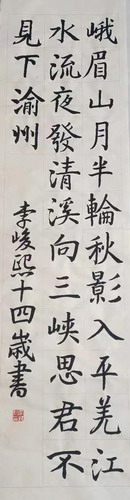 峨眉山月半輪秋影入平羌江
水流夜發清溪向三峽思君不
見下渝州
李峻熙十四歲書